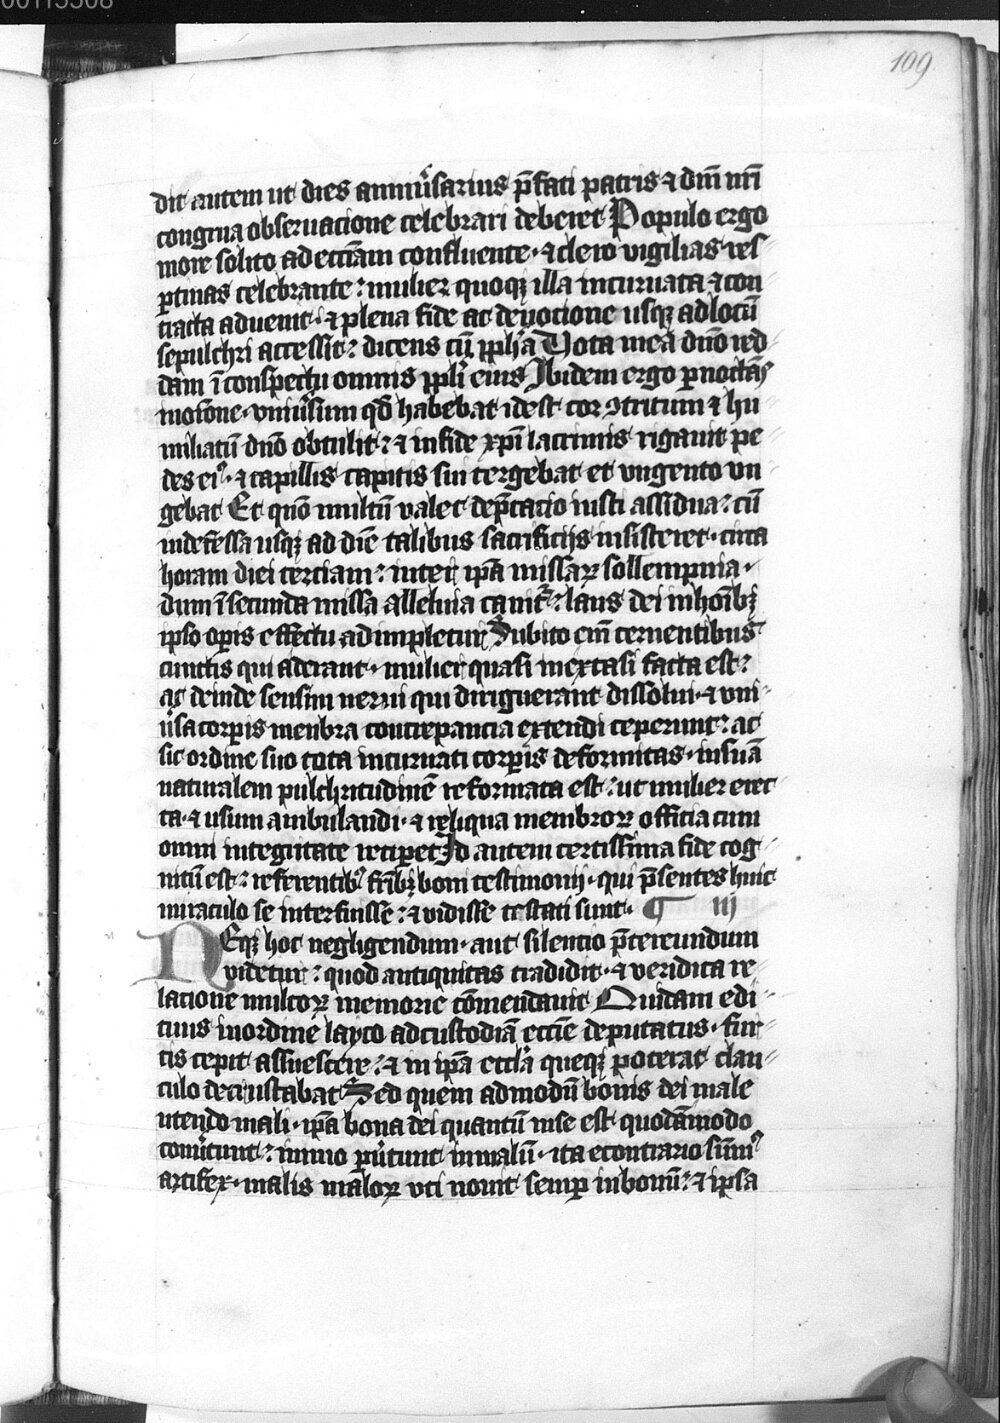 00115508
109
dit autem ut dies anniu͛sarius p̄fati patris ⁊ dm̄ nr̄i
congrua obseruacione celebrari deberet Populo ergo
more solito ad eccīam confluente · ⁊ clero vigilias ves
ꝑtinas celebrante : mulier quoqꝫ illa incuruata ⁊ con
tracta aduenit · ⁊ plena fide ac deuocione usqꝫ ad locū
sepulchri accessit : dicens cū ꝓph̄a Vota mea dn̄o red
dam ī conspectu omnis ppl̄i eius Ibidem ergo ꝑnoctās
vniu͛sum qd̄ habebat idest cor ꝯtritum ⁊ hu
miliatū dn̄o obtulit : ⁊ in fide xp̄i lacrimis rigauit pe
des eiꝰ · ⁊ capillis capitis sui tergebat et vngento vn
gebat Et quō multū valet dep̄catio iusti assidua : cū
indefessa usqꝫ ad diē talibus sacrificijs insisteret · circa
horam diei terciam : inter ip̄a missaꝝ sollempnia ·
dum ī secunda missa alleluia canit᷑ : laus dei in hoīb꜄
ipso oꝑis effectu adimpletur Subito em̄ cernentibus
cunctis qui aderant · mulier quasi in extasi facta est :
ac deinde sensim nerui qui diriguerant dissolui · ⁊ vni
u͛sa corꝑis menbra concrepancia extendi ceperunt : ac
sic ordine suo tota incuruati corꝑis deformitas · in suā
naturalem pulchritudinē reformata est : ut mulier erec
ta · ⁊ usum ambulandi · ⁊ reliqua membroꝝ officia cum
omni integritate reciꝑet Id autem certissima fide cog
nitū est : referentibꝰ fr̄ibꝫ boni testimonij · qui p̄sentes huic
miraculo se interfuisse : ⁊ vidisse testati sunt · ¶ iij
NEqꝫ hoc negligendum · aut silentio p̄tereundum
videtur : quod antiquitas tradidit · ⁊ veridica re
lacione multoꝝ memorie cōmendauit Quidam edi
tuus in ordine layco ad custodiā eccīe deputatus · fur
tis cepit assuescere : ⁊ in ip̄a eccl̄a queqꝫ poterat clan
culo decrustabat Sed quem admodū bonis dei male
utendo mali · ip̄a bona dei quantū in se est quodāmodo
cōu͛tunt : immo ꝑu͛tunt in malū · ita econtrario sūmꝰ
artifex · malis maloꝝ vti nouit semꝑ in bonū : ⁊ ipsa